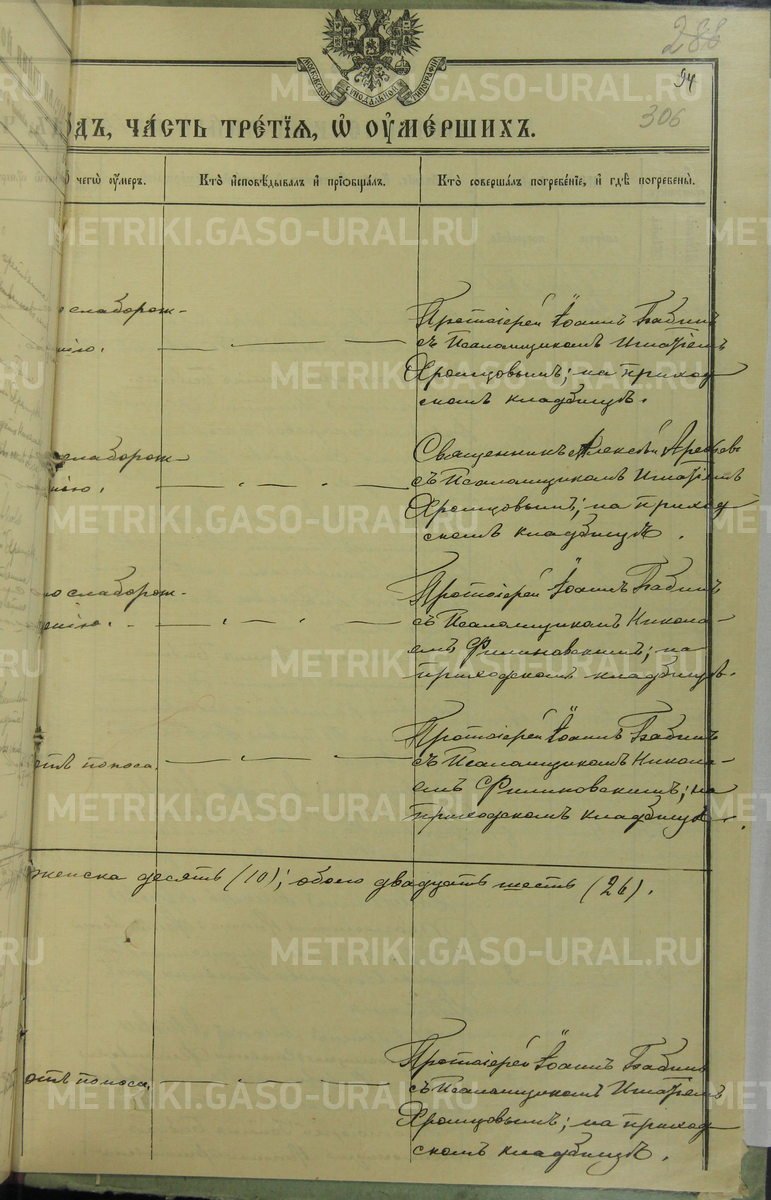 288
94
306
МОСКОВСКОЙ СѴНОДАЛЬНОЙ ТИПОГРАФІИ
одъ, чáсть трéтїѧ, ѡ оумéршихъ.
чегѡ оумеръ.
Ктò исповѣдывалъ и прїобщáлъ.
Ктò совершáлъ погребéнїе, и гдѣ погребены̀.
о слаборож-
нію.
Протоіерей Іоаннъ Бабинъ
съ Псаломщикомъ Игнатіемъ
Хромцовымъ; на приход
скомъ кладбищѣ.
слаборож-
нію.
Священникъ Алексѣй Арефьевъ
съ Псаломщикомъ Игнатіемъ
Хромцовымъ; на приход
скомъ кладбищѣ.
по слаборож-
денію.
Протоіерей Іоаннъ Бабинъ
съ Псаломщикомъ Никола-
емъ Филиновскимъ; на
приходскомъ кладбищѣ.
отъ поноса.
Протоіерей Іоаннъ Бабинъ
съ Псаломщикомъ Никола-
емъ Филиновскимъ; на
приходскомъ кладбищѣ.
женска десять (10); обоего двадцать шесть (26).
отъ поноса.
Протоіерей Іоаннъ Бабинъ
съ Псаломщикомъ Игнатіемъ
Хромцовымъ; на приход
скомъ кладбищѣ.
METRIKI.GASO-URAL.RU